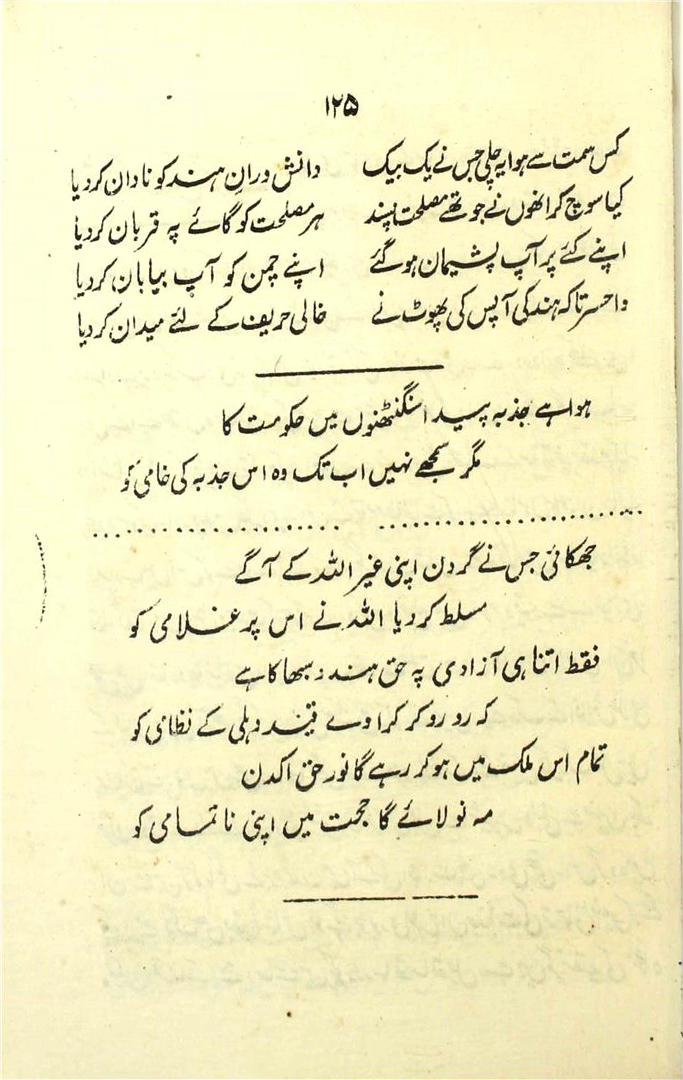 ۱۲۵
کس سمت سے ہوا یہ چلی جس نے یک بیک دانش ورانِ ہند کو نادان کر دیا
کیا سوچ کر انھوں نے جو تھے مصلحت پسند ہر مصلحت کو گائے پہ قربان کر دیا
اپنے کئے پر آپ پشیمان ہو گئے اپنے چمن کو آپ بیابان کر دیا
وا حسرتا کہ ہند کی آپس کی پھوٹ نے خالی حریف کے لئے میدان کر دیا
ہوا ہے جذبہ پیدا سنگٹھنوں میں حکومت کا
مگر سمجھے نہیں اب تک وہ اس جذبہ کی خامی کو
جھکائی جس نے گردن اپنی غیر اللہ کے آگے
مسلط کر دیا اللہ نے اس پر غلامی کو
فقط اتنا ہی آزادی پہ حق ہندو سبھا کا ہے
کہ رو رو کر کرا دے قید دہلی کے نظامی کو
تمام اس ملک میں ہو کر رہے گا نور حق اکدن
مہ نو لائے گا حجت میں اپنی ناتمامی کو